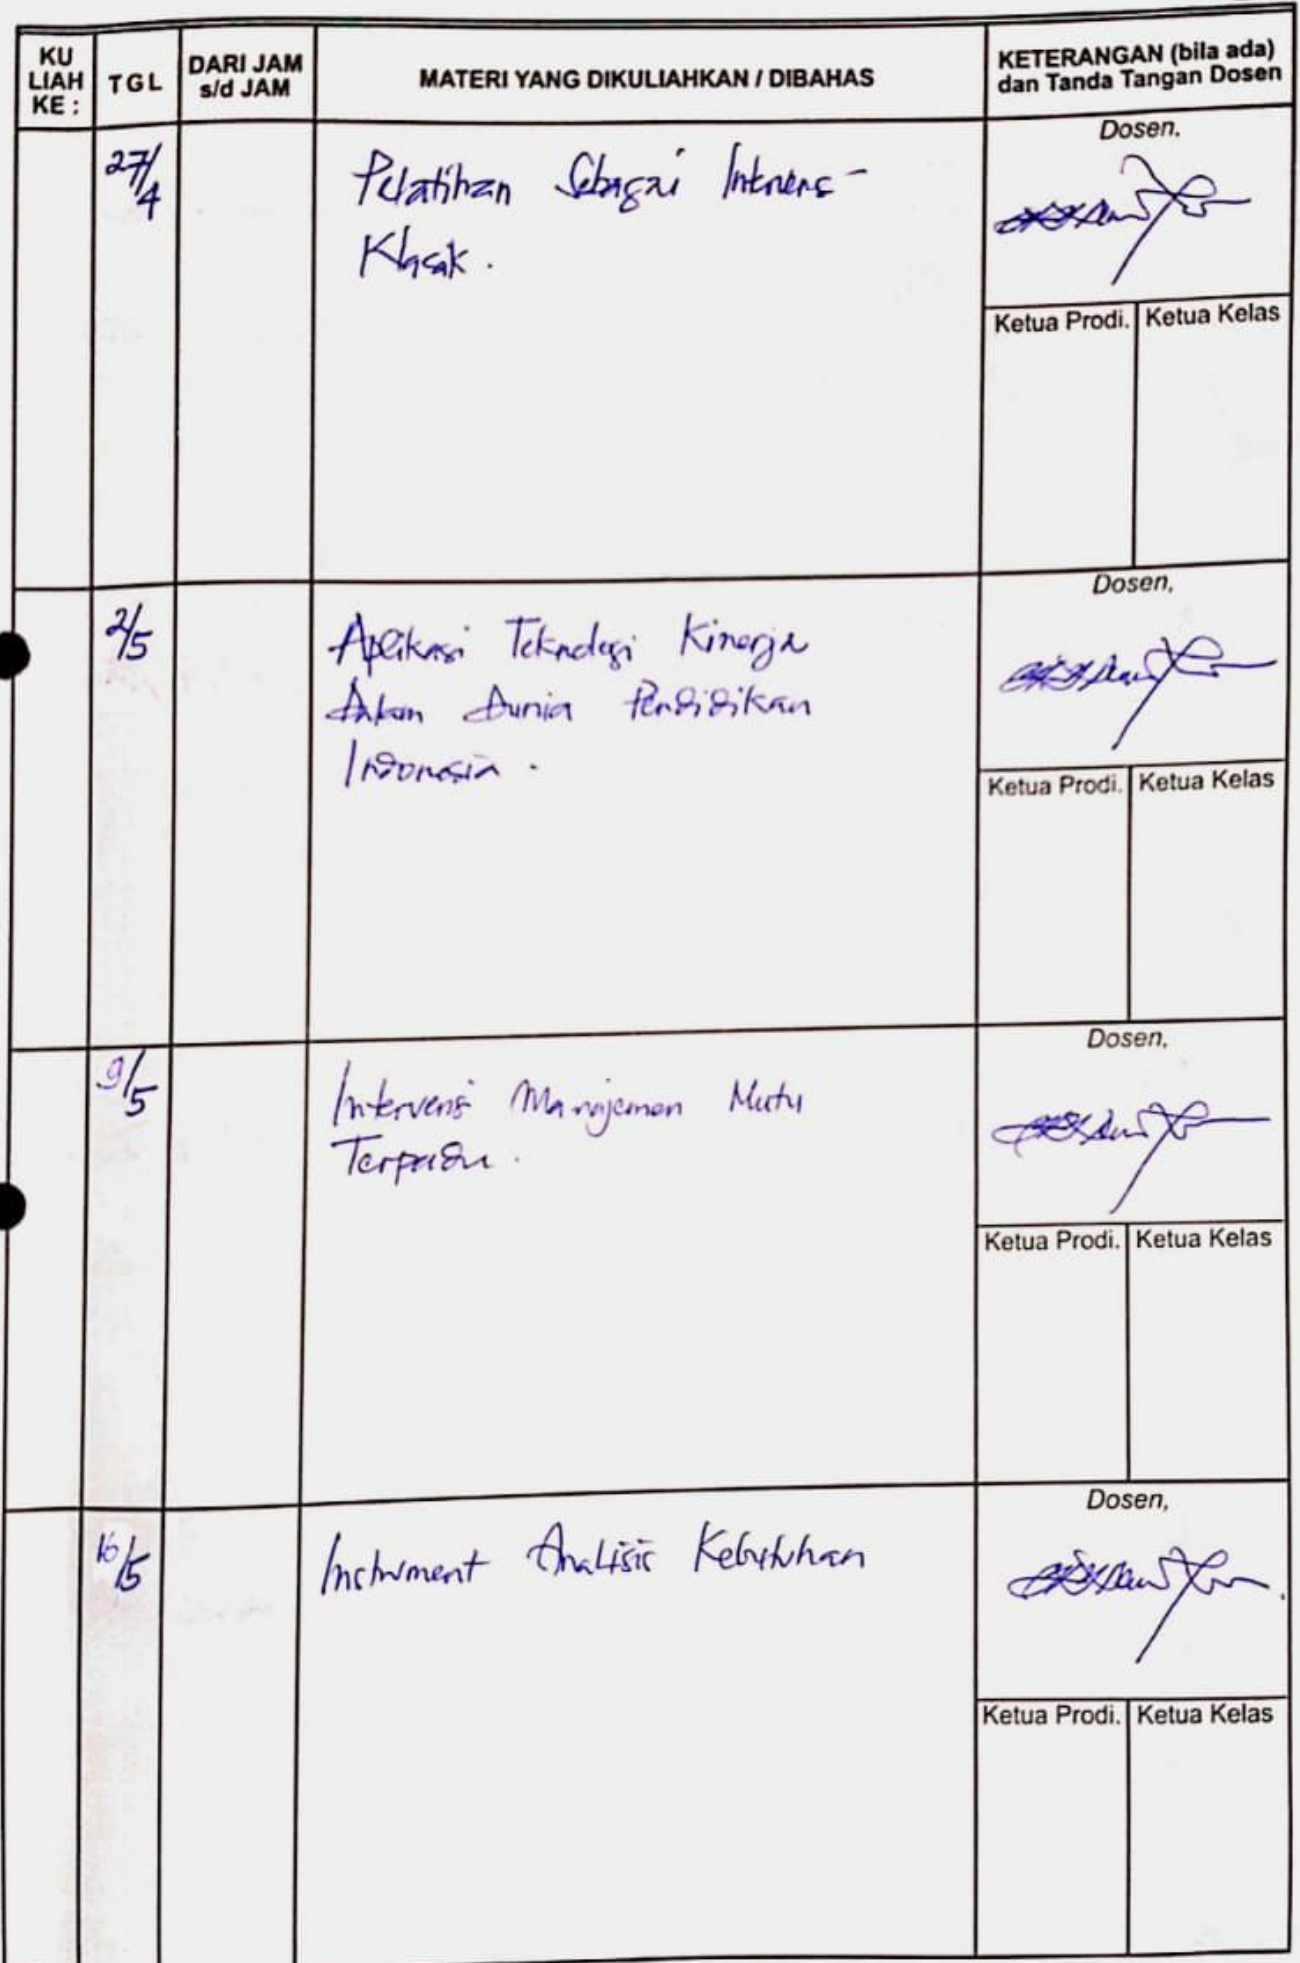 KU LIAH KE :
TGL
DARI JAM s/d JAM
MATERI YANG DIKULIAHKAN / DIBAHAS
KETERANGAN (bila ada)
dan Tanda Tangan Dosen
27/4
Pelatihan Sebagai Intervens-
Klasik.
Dosen.
Ketua Prodi. Ketua Kelas
2/5
Aplikasi Teknologi Kinerja
Dalam Dunia Pendidikan
Indonesia.
Dosen,
Ketua Prodi. Ketua Kelas
9/5
Intervensi Manajemen Mutu
Terpadu.
Dosen,
Ketua Prodi. Ketua Kelas
16/5
Instrument Analisis Kebutuhan
Dosen,
Ketua Prodi. Ketua Kelas